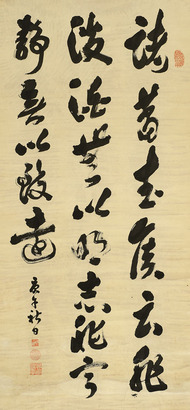 諸葛武侯云非
淡泊無以明志非寧
靜無以致遠
庚午秋日